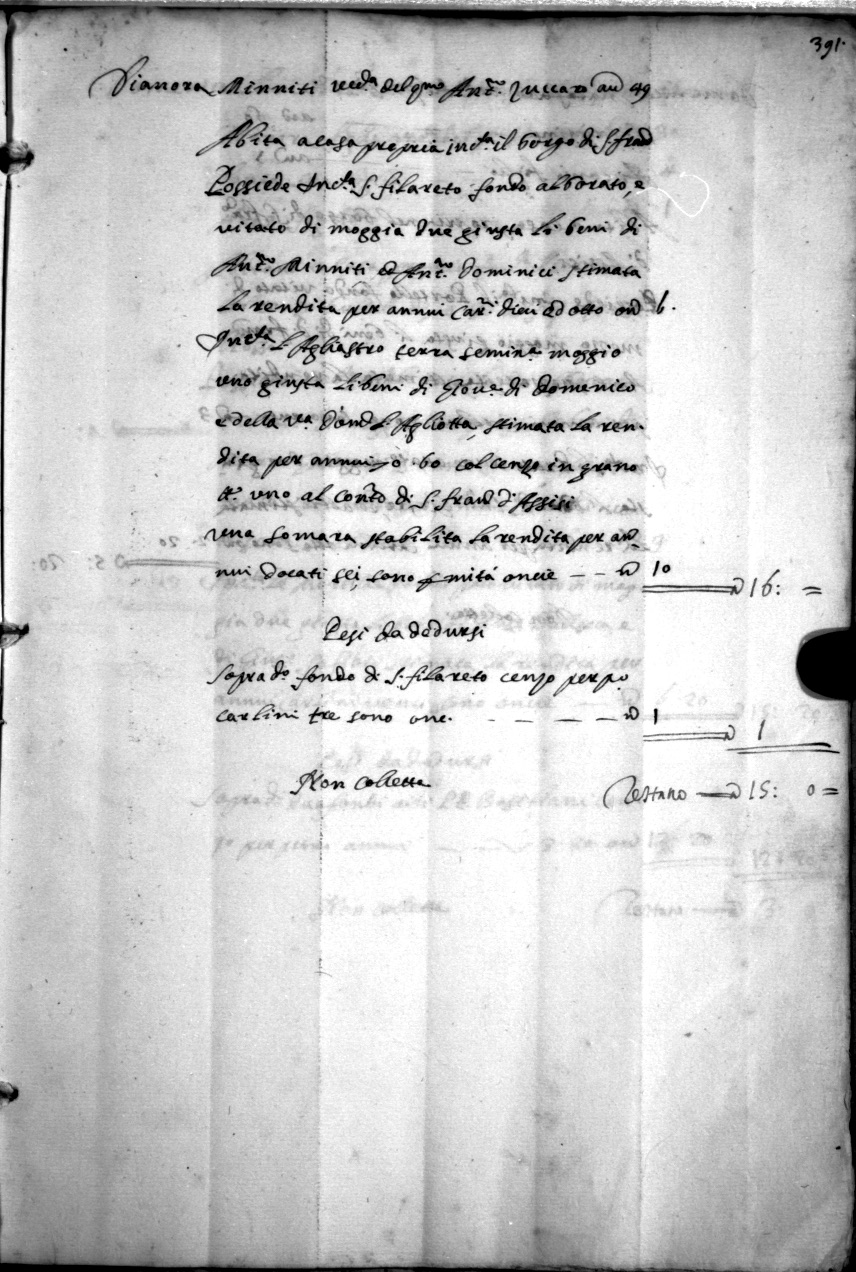 391.
Dianora Minniti ved.a del qm.o Ant.o Zuccaro an 49
Abita a casa propria in c.ta il borgo di S. fran
Possiede In c.ta S. filareto fondo alborato, e
vitato di moggia due giusta li beni di
Ant.o Minniti ed Ant.o Dominici stimata
la rendita per annui car.i dieci ed otto on 6.
In c.ta L'Agliastro terra semin.a moggio
uno giusta li beni di Giov.e di Domenico
e della ved.a L'Agliotta, stimata la ren-
dita per annui 60 col cenzo in grano
uno al con.to di S. fran d'Assisi
una somara stabilita la rendita per an-
nui docati sei, sono p mità oncie — — 10 16: =
Pesi da dedursi
Soprad.o fondo di S. filareto cenzo per
carlini tre sono onc. — — — — 1 1
Non colletta Restano — 15: 0 =